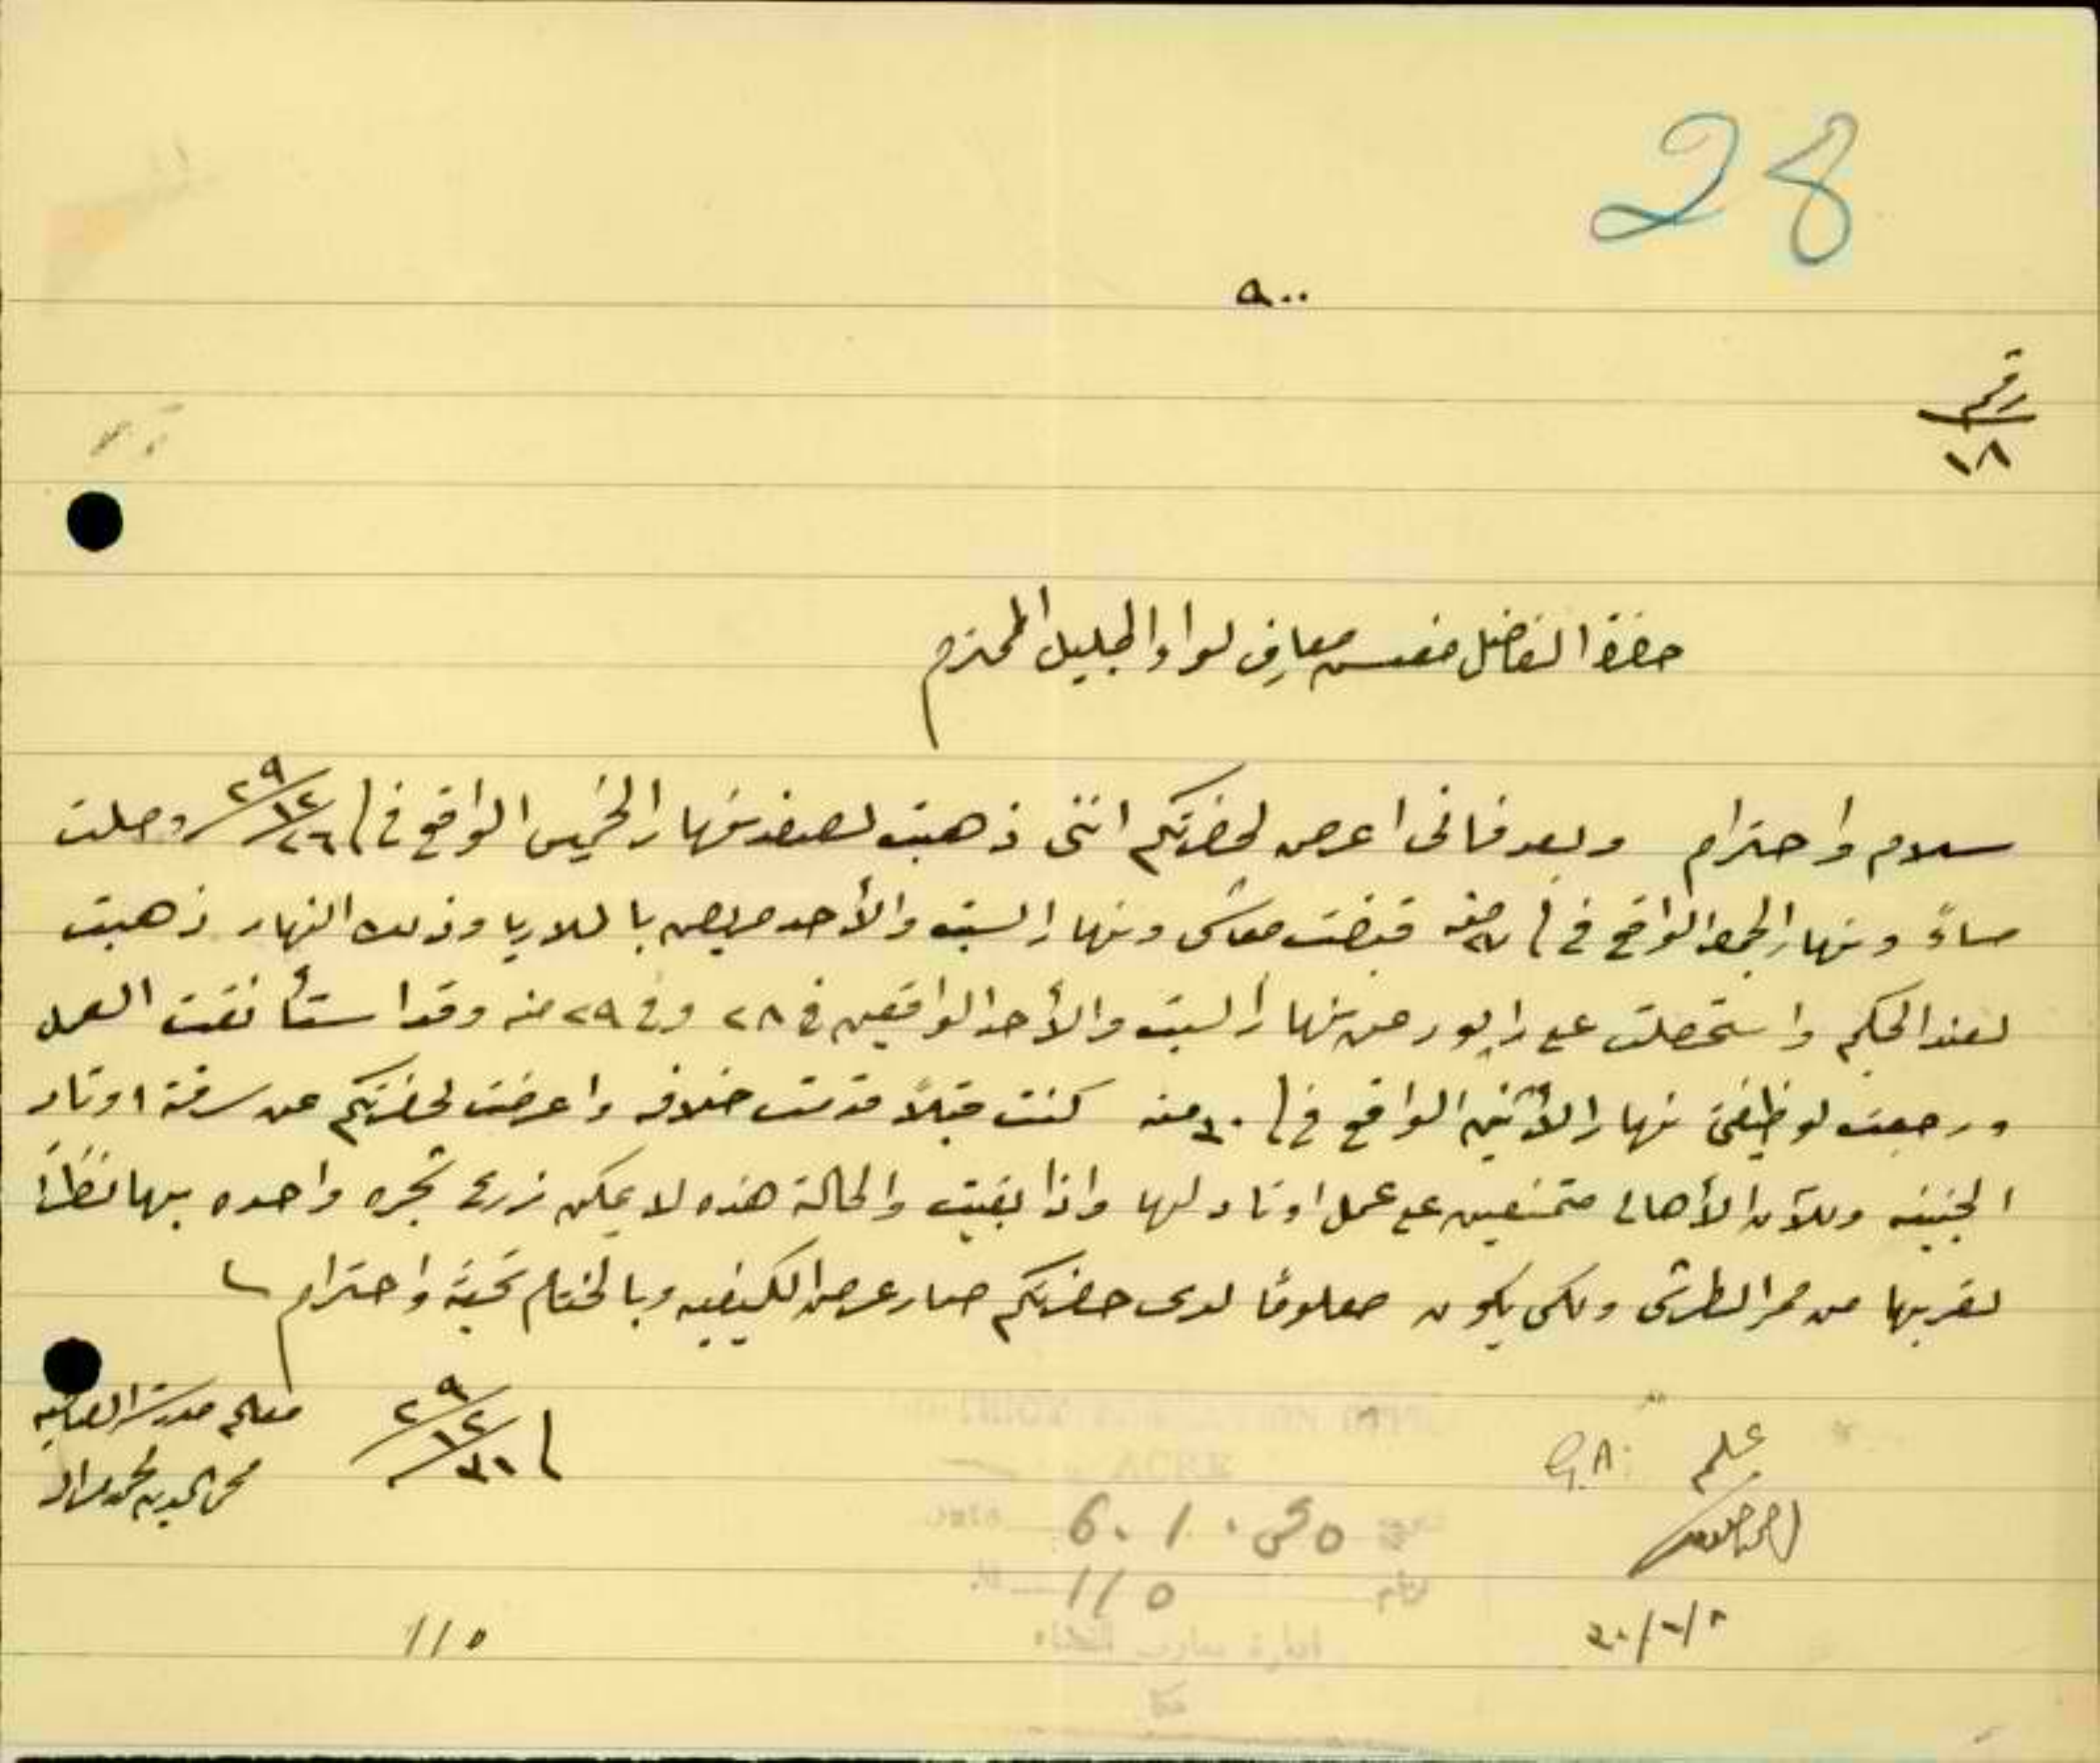 28
٩٠٠
رقم
١٨
حضرة الفاضل مفتش معارف لواء الجليل المحترم
سلام واحترام وبعد فاني اعرض لحضرتكم انني ذهبت لصفد نهار الخميس الواقع في ٢٦/١٢/٢٩ وصلت
مساءً ونهار الجمعة الواقع في ٢٧ منه قبضت معاشي ونهار السبت والأحد مريض بالملاريا وذلك النهار ذهبت
لعند الحكيم واستحصلت على رابور من نهار السبت والأحد الواقعين في ٢٨ وفي ٢٩ منه وقد استأنفت العمل
ورجعت لوظيفتي نهار الأثنين الواقع في ٣٠ منه كنت قبلاً قدمت خلافه واعرضت لحضرتكم عن سرقة اوتاد
الجنينه وللآن الأهالي متمنعين على عمل اوتاد لها واذا بقيت والحالة هذه لا يمكن زرع شجره واحده بها نظراً
لقربها من ممر الطرش ولكي يكون معلومًا لدى حضرتكم صار عرض الكيفيه وبالختام تحية واحترام
٣١/١٢/٢٩
معلم مدرسة
علم
G.A.
DISTRICT EDUCATION OFFICE
ACRE
Date 6.1.30
رقم 110 No.
ادارة معارف القضاء
عكا
110